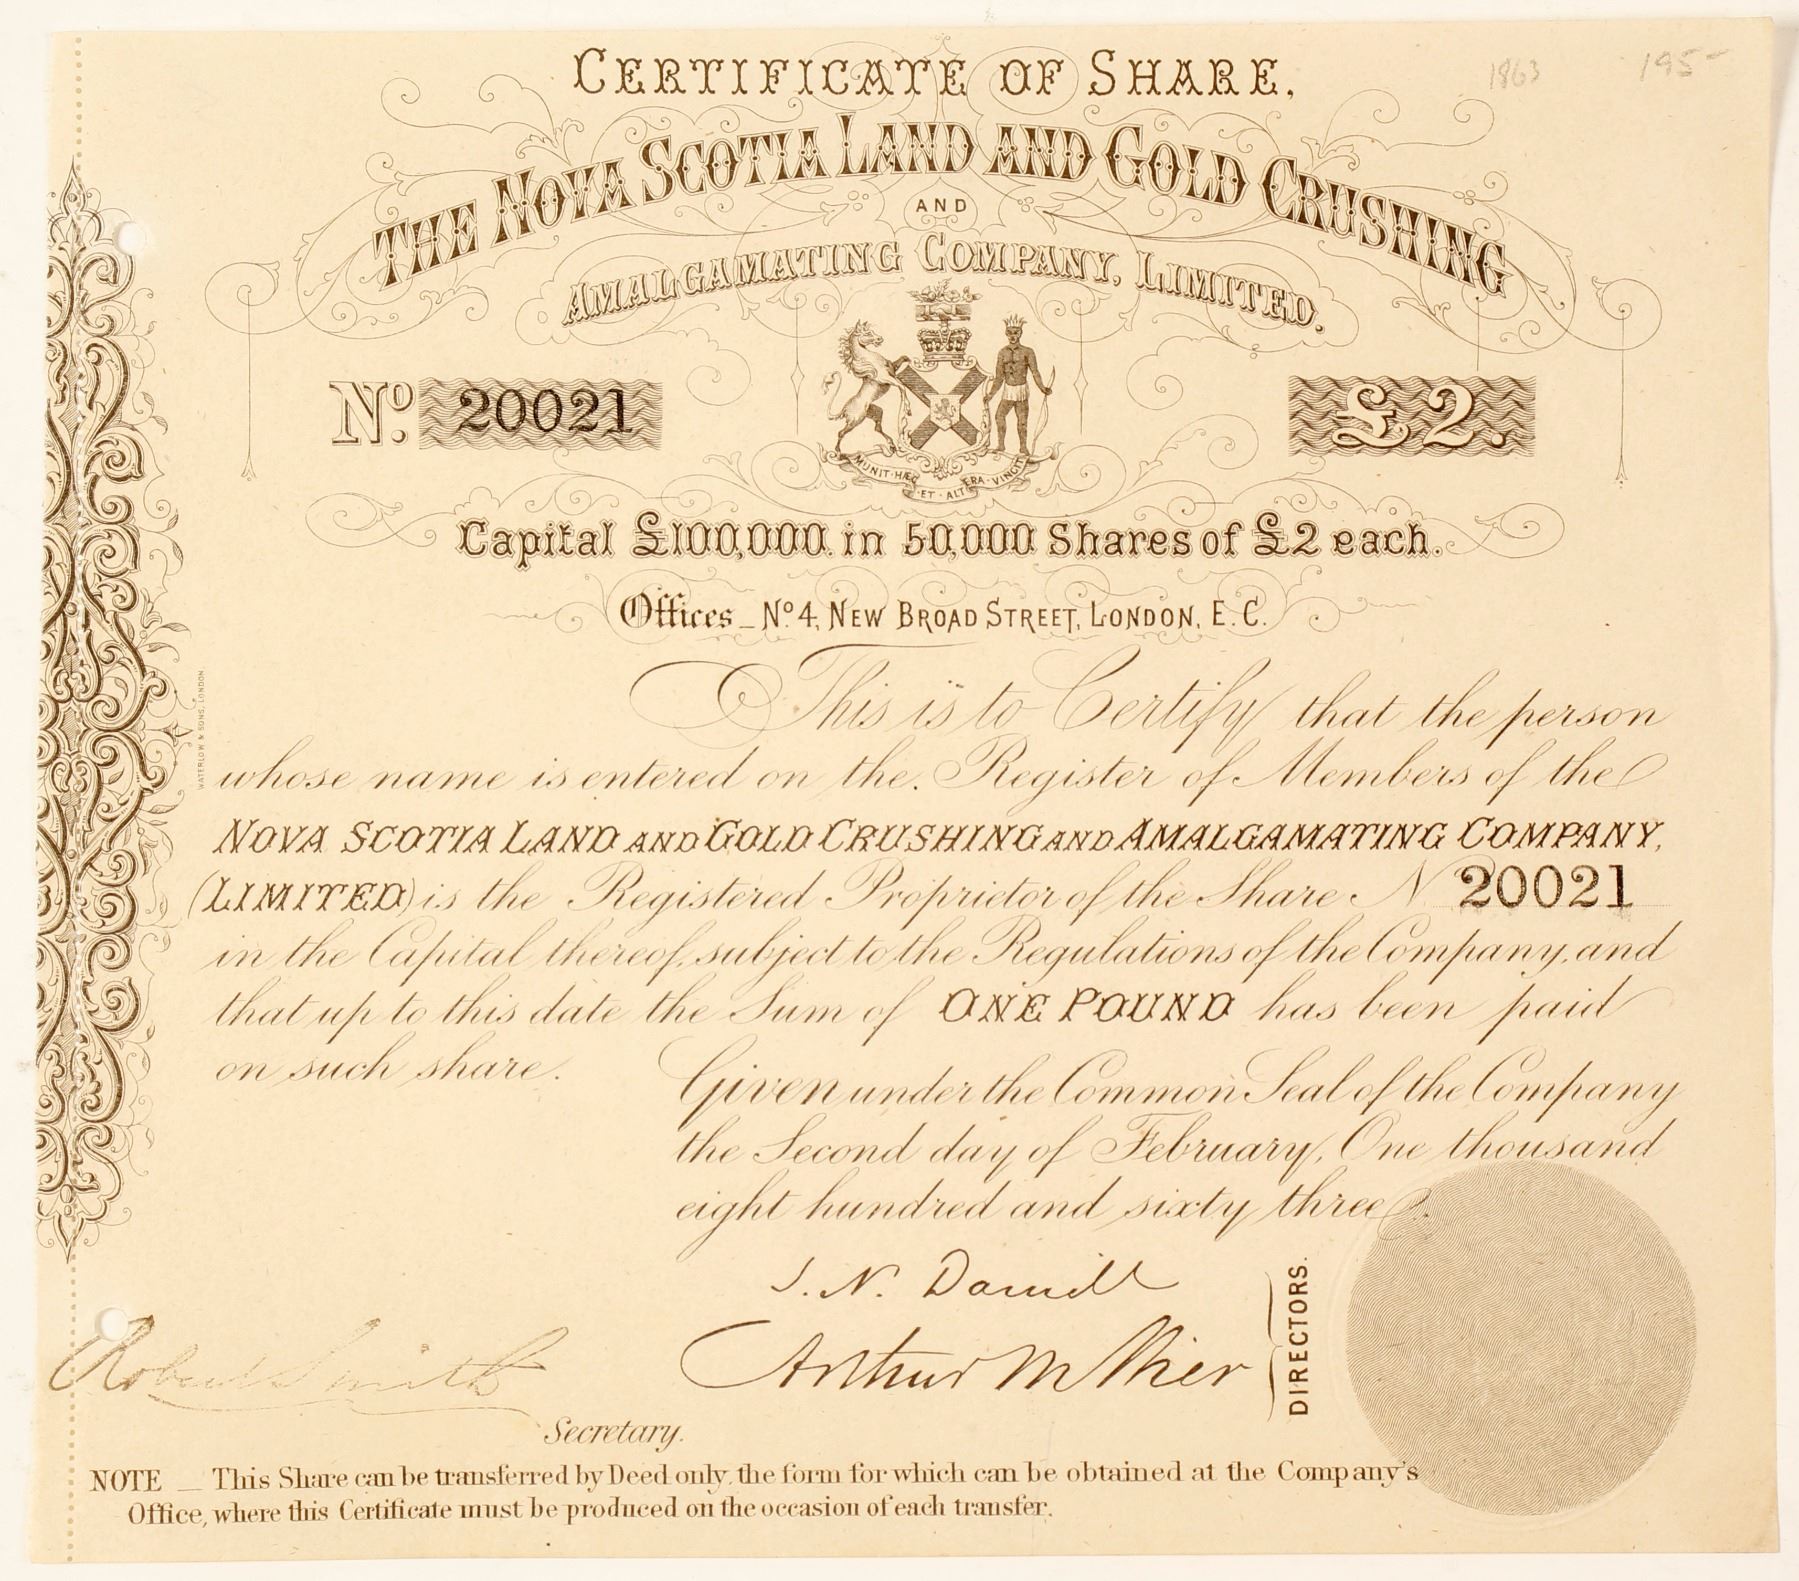 1863 195-
CERTIFICATE OF SHARE,
THE NOVA SCOTIA LAND AND GOLD CRUSHING
AND
AMALGAMATING COMPANY, LIMITED.
No. 20021
£2.
MUNIT·HÆC·ET·ALTERA·VINCIT
Capital £100,000. in 50,000 Shares of £2 each.
Offices _ No. 4, NEW BROAD STREET, LONDON, E.C.
WATERLOW & SONS, LONDON
This is to Certify that the person
whose name is entered on the. Register of Members of the
NOVA SCOTIA LAND AND GOLD CRUSHING AND AMALGAMATING COMPANY,
(LIMITED) is the Registered Proprietor of the Share N 20021
in the Capital thereof, subject to the Regulations of the Company, and
that up to this date the Sum of ONE POUND has been paid
on such share.
Given under the Common Seal of the Company
the Second day of February, One thousand
eight hundred and sixty three.
DIRECTORS.
Arthur
Robert Smith
Secretary.
NOTE _ This Share can be transferred by Deed only, the form for which can be obtained at the Company's
Office, where this Certificate must be produced on the occasion of each transfer.